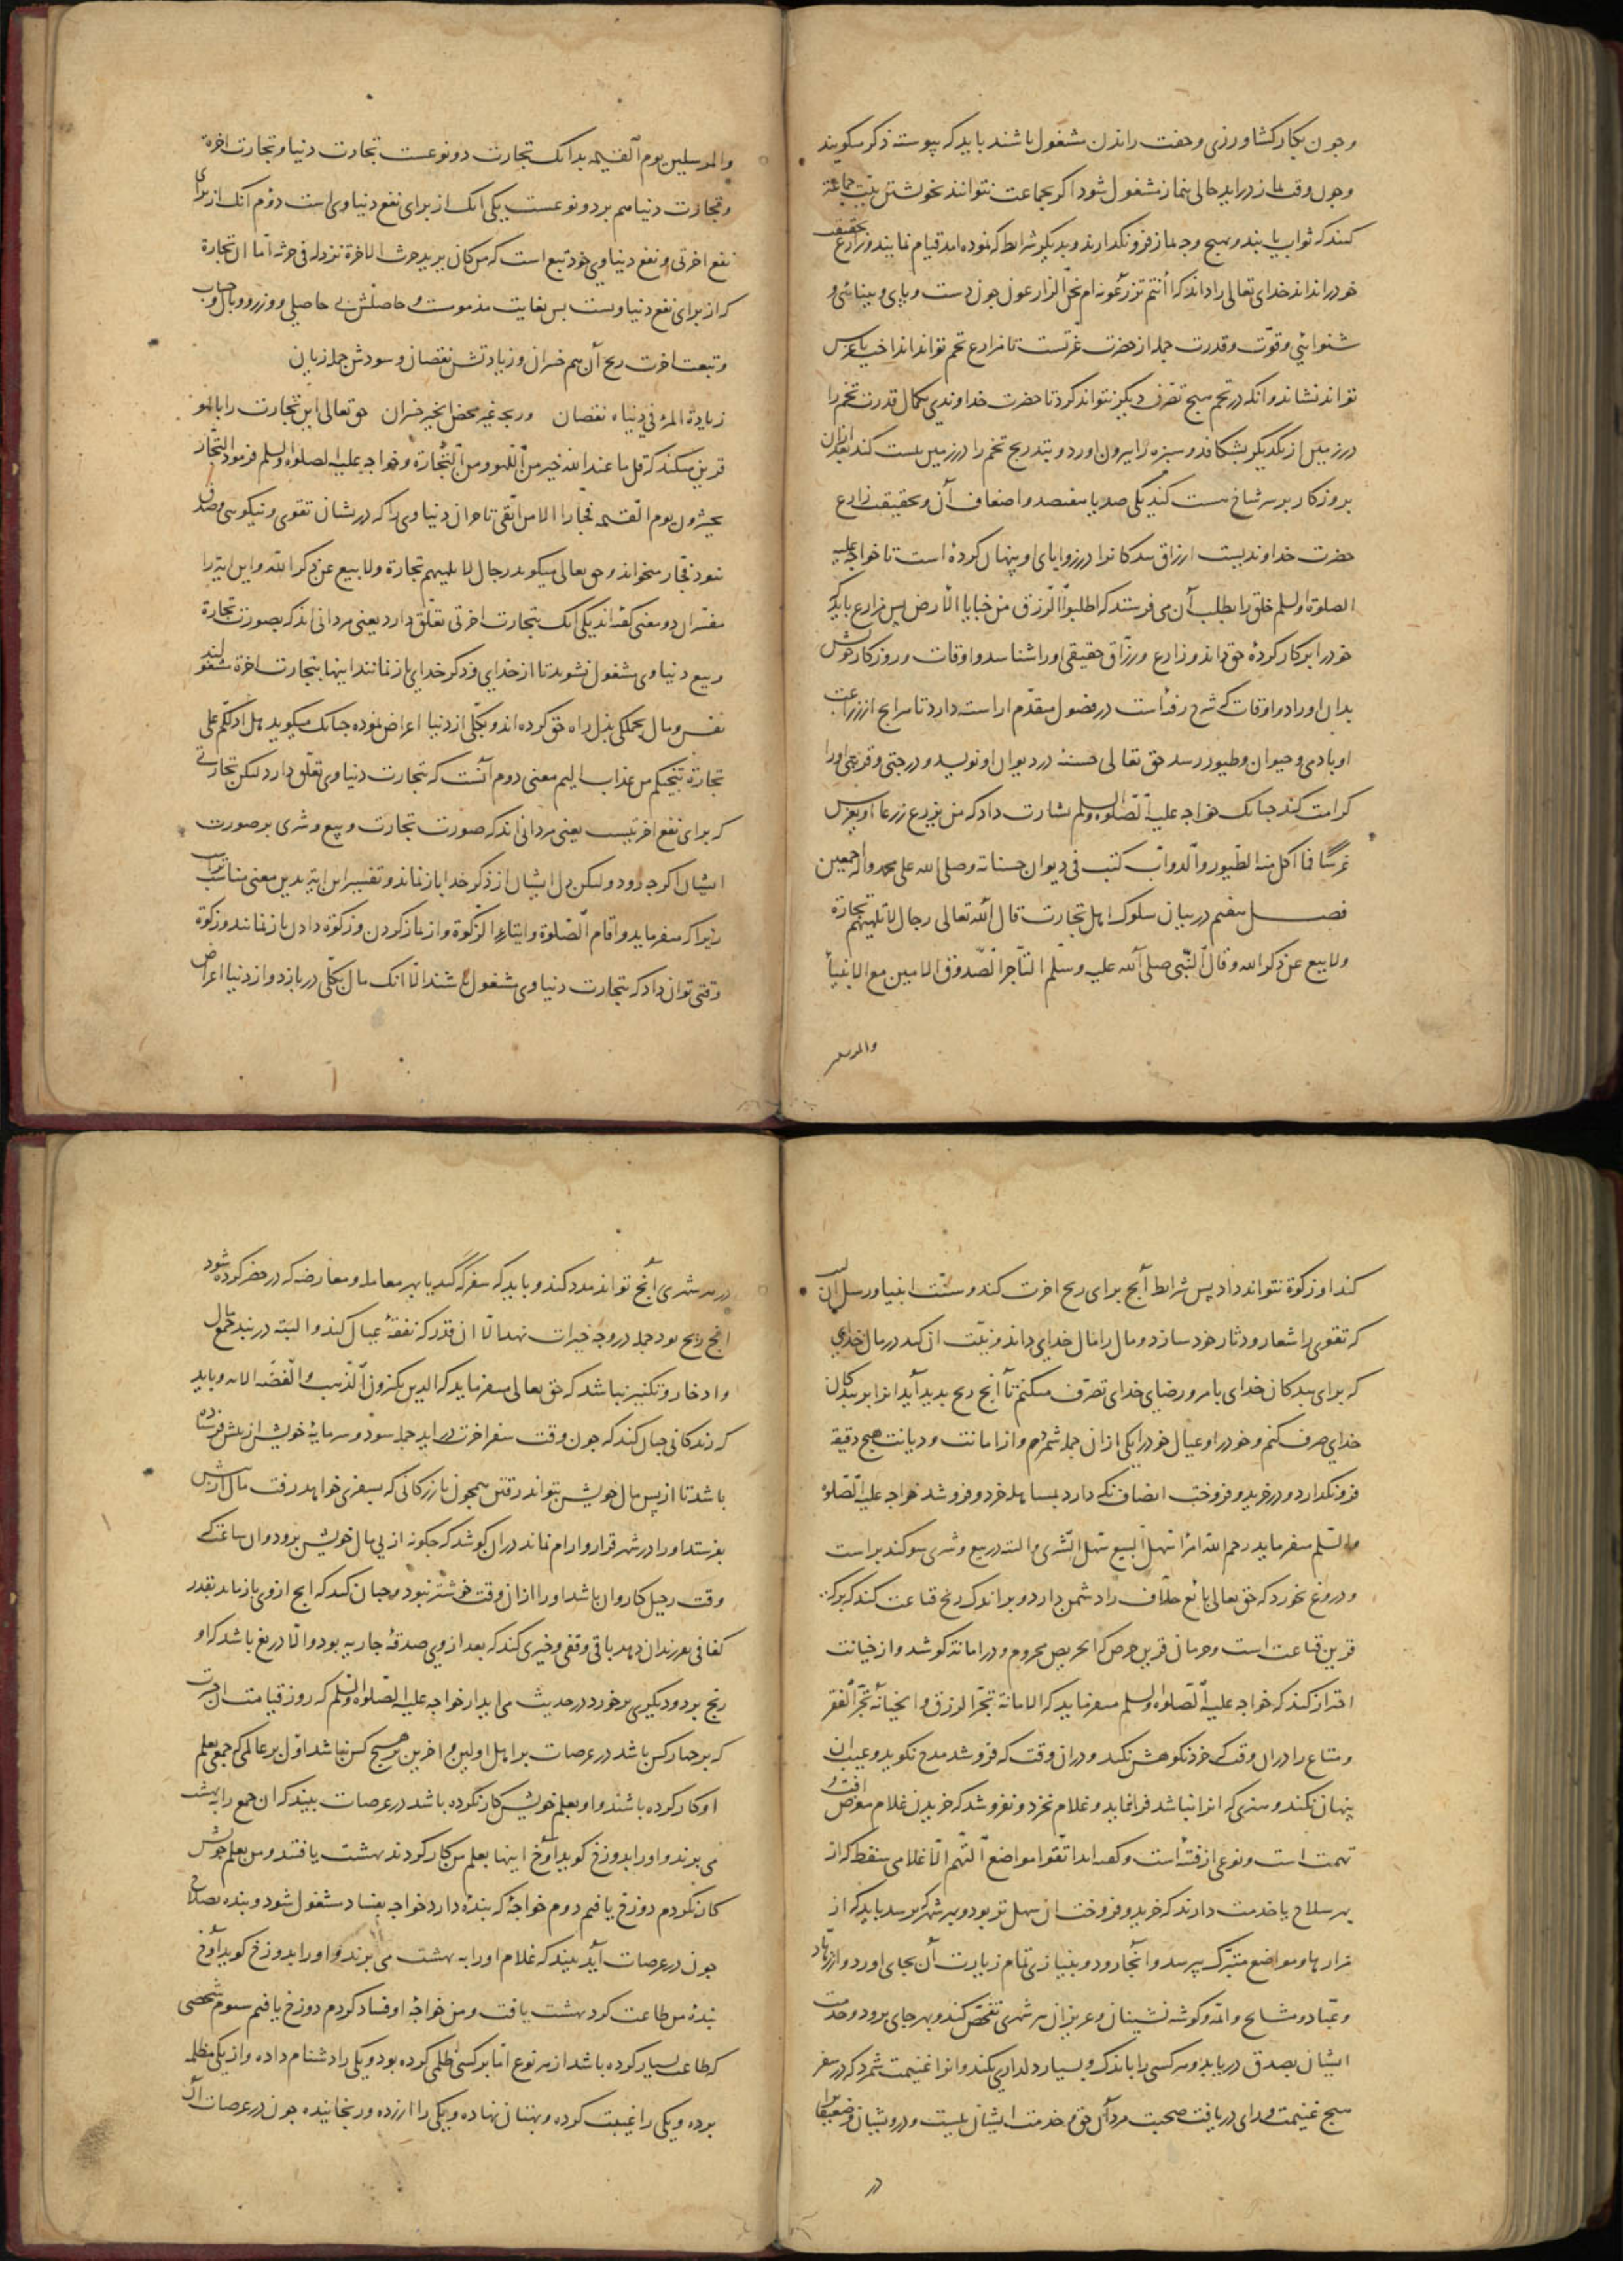 وجون بکار کشاورزی وجفت راندن مشغول باشند باید که پیوسته ذکر میکویند
وجون وقت نماز دراید حالی بنماز مشغول شود اکر بجماعت نتوانند بخویشتن نیّت جماعة
کنند که ثواب بیابند وبهیچ وجه نماز فرو نکذارند وبدیکر شرایط که نموده امد قیام نمایند وزارع بحقیقت
خود را نداند خدای تعالی را داند که اأنتم تزرعونه ام نحن الزارعون جون دست وپای وبینائی و
شنوائی وقوّت وقدرت جمله از حضرت عزّتست تا مزارع تخم تواند انداخت یا غرس
تواند نشاند وانکه در تخم هیچ تصرّف دیکر نتواند کرد تا حضرت خداوندی بکمال قدرت تخم را
در زمین از یکدیکر بشکافد وسبزه را بیرون اورد وبتدریج تخم را در زمین نیست کند بعد ازان
بروزکار بر سر شاخ هست کند یکی صد یا هفتصد واضعاف آن وبحقیقت زارع
حضرت خداوندیست ارزاق بندکانرا در زوایای او پنهان کرده است تا خواجه علیه
الصلوة والسلم خلق را بطلب آن می فرستد که اطلبوا الرزق من خبایا الارض پس مزارع باید که
خود را بر کار کردهٔ حق داند وزارع ورزّاق حقیقی او را شناسد واوقات وروزکار خویش
بدان اوراد واوقات که شرح رفته است در فصول مقدّم اراسته دارد تا هرایج از زراعت
او بادمی وحیوان وطیور رسد حق تعالی حسنهٔ در دیوان او نویسد ودرجتی وقربتی اورا
کرامت کند جنانک خواجه علیه الصّلوة والسلم بشارت داد که من یزرع زرعا او یغرس
غرسًا فما اکل منه الطیور والدوابّ کتب فی دیوان حسناته وصلی الله علی محمد واله اجمعین
فصـل هفتم در بیان سلوک اهل تجارت قال الله تعالی رجال لا تلهیهم تجارة
ولا بیع عن ذکر الله وقال النّبی صلی الله علیه وسلّم التّاجر الصّدوق الامین مع الانبیاء
والمرسلین
والمرسلین یوم القیمة بدانک تجارت دو نوعست تجارت دنیا وتجارت اخرة
وتجارت دنیا هم بر دو نوعست یکی انک از برای نفع دنیاوی است دوّم انک از برای
نفع اخرتی ونفع دنیاوی خود تبع است که من کان یرید حرث الاخرة نزد له فی حرثه امّا ان تجارة
که از برای نفع دنیاوست بس بغایت مذموست وحاصلش بی حاصیلی ووزر ووبال وحساب
وتبعت اخرت ربح آن هم خسران وزیادتش نقصان وسودش جمله زیان
زیادة المرء فی دنیاه نقصان وربحه غیر محض الخیر خسران حق تعالی این تجارت را با لهو
قرین میکند که قل ما عند الله خیر من اللهو ومن التّجارة وخواجه علیه الصلوة والسلم فرمود التجّار
یحشرون یوم القیمة فجّارا الا من اتقی تاجران دنیاوی را که دریشان تقوی ونیکوئی وصدق
نبود فجّار میخواند وحق تعالی میکوید رجال لا تلهیهم تجارة ولا بیع عن ذکر الله واین ایة را
مفسّران دو معنی کفته اند یکی انک بتجارت اخرتی تعلّق دارد یعنی مردانی اند که بصورت تجارة
وبیع دنیاوی مشغول نشوند تا از خدای وذکر خدای باز نمانند اینها بتجارت اخرة مشغولند
نفس ومال بجملکی بذل راه حق کرده اند وبکلّی از دنیا اعراض نموده جنانک میکوید هل ادلّکم علی
تجارة تنجیکم من عذاب الیم معنی دوم آنست که بتجارت دنیاوی تعلّق دارد لکن تجارتی
که برای نفع اخرتیست یعنی مردانی اند که صورت تجارت وبیع وشری بر صورت
ایشان اکر جه رود ولکن دل ایشان از ذکر خدا باز نماند وتفسیر این ایة بدین معنی مناسب تراست
زیرا که میفرماید واقام الصّلوة وایتاء الزکوة واز نماز کردن وزکوة دادن باز نمانند وزکوة
وقتی توان داد که بتجارت دنیاوی مشغول باشند الّا انک مال بکلّی دربازد واز دنیا اعراض
کند او زکوة نتواند داد پس شرایط آنج برای ربح اخرت کند وسنّت انبیا ورسل انست
که تقوی را شعار ودثار خود سازد ومال را مال خدای داند ونیّت ان کند در مال خدای
که برای بندکان خدای بامر ورضای خدای تصرّف میکنم تا آنج ربح پدید آید انرا بر بندکان
خدای صرف کنم وخود را وعیال خود را یکی ازان جمله شمرم واز امانت ودیانت هیچ دقیقه
فرو نکذارد ودر خرید وفروخت انصاف نکه دارد بمساهله خرد وفروشد خواجه علیه الصّلوة
والسّلم میفرماید رحم الله امرأ سهل البیع سهل الشری والبته در بیع وشری سوکند براست
ودروغ نخورد که حق تعالی بائع حلّاف را دشمن دارد وبر اندک ربح قناعت کند که برکة
قرین قناعت است وحرمان قرین حرص که الحریص محروم ودر امانة کوشد واز خیانت
احتراز کند که خواجه علیه الصّلوة والسلم میفرماید که الامانة تجرّ الرزق والخیانة تجرّ الفقر
ومتاع را دران وقت که خرد نکوهش نکند ودران وقت که فروشد مدح نکوید وعیب ان
پنهان نکند وهنری که انرا نباشد فرا ننماید وغلام نخرد ونفروشد که خریدن غلام معرض افت و
تهمت است ونوعی از فتنه است وکفته اند اتّقوا مواضع التّهم الّا غلامی سقط که از
بهر سلاح یا خدمت دارند که خرید وفروخت ان سهل تر بود وبهر شهر که برسد باید که از
مزارها ومواضع متبرّک بپرسد وآنجا رود وبنیازی تمام زیارت آن بجای اورد واز زهّاد
وعبّاد ومشایخ وائمّه وکوشه نشینان وعزیزان هر شهری تفحّص کند وبهر جای برود وخدمت
ایشان بصدق دریابد وهر کسی را باندک وبسیار دلداریی کند وانرا غنیمت شمرد که در سفر
هیچ غنیمت ورای دریافت صحبت مردان حق وخدمت ایشان نیست ودرویشان وضعیفان را
در
در هر شهری آنج تواند مدد کند وباید که سفر که کند یا بهر معامله ومعارضه که در حضر کرده شود
انج ربح بود جمله در وجه خیرات نهد الّا ان قدر که نفقهٔ عیال کند والبته در بند جمع مال
وادخار وتکثیر نباشد که حق تعالی میفرماید که الذین یکنزون الذّهب والفضّة الایه وباید
که زندکانی جنان کند که جون وقت سفر اخرت دراید جمله سود وسرمایهٔ خویش از پیش فرستاده
باشد تا از پس مال خویش بتواند رفتن همجون بازرکانی که بسفری خواهد رفت مال از پیش
بفرستد اورا در شهر قرار وارام نماند دران کوشد که جکونه از پی مال خویش برود وان ساعت که
وقت رحیل کاروان باشد اورا ازان وقت خوشتر نبود وجنان کند که انج ازوی باز ماند بقدر
کفافی بفرزندان دهد باقی وقفی وخیری کند که بعد ازوی صدقهٔ جاریه بود والّا دریغ باشد که او
رنج برد ودیکری برخورد در حدیث می اید از خواجه علیه الصّلوة والسّلم که روز قیامت ان حسرت
که بر جهار کس باشد در عرصات بر اهل اولین واخرین بر هیچ کس نباشد اوّل بر عالمی که جمعی بعلم
او کار کرده باشند واو بعلم خویش کار نکرده باشد در عرصات بیند که ان جمع را بهشت
می برند واورا بدوزخ کوید آوخ اینها بعلم من کار کردند بهشت یافتند ومن بعلم خویش
کار نکردم دوزخ یافتم دوم خواجهٔ که بندهٔ دارد خواجه بفساد مشغول شود وبنده بصلاح
جون در عرصات آید بیند که غلام اورا به بهشت می برند واورا بدوزخ کوید آوخ
بندهٔ من طاعت کرد بهشت یافت ومن خواجهٔ او فساد کردم دوزخ یافتم سوم شخصی
که طاعت بسیار کرده باشد از هر نوع امّا بر کسی ظلمی کرده بود ویکی را دشنام داده واز یکی مظلمه
بوده ویکی را غیبت کرده وبهتان نهاده ویکی را ازرده ورنجانیده جون در عرصات آید